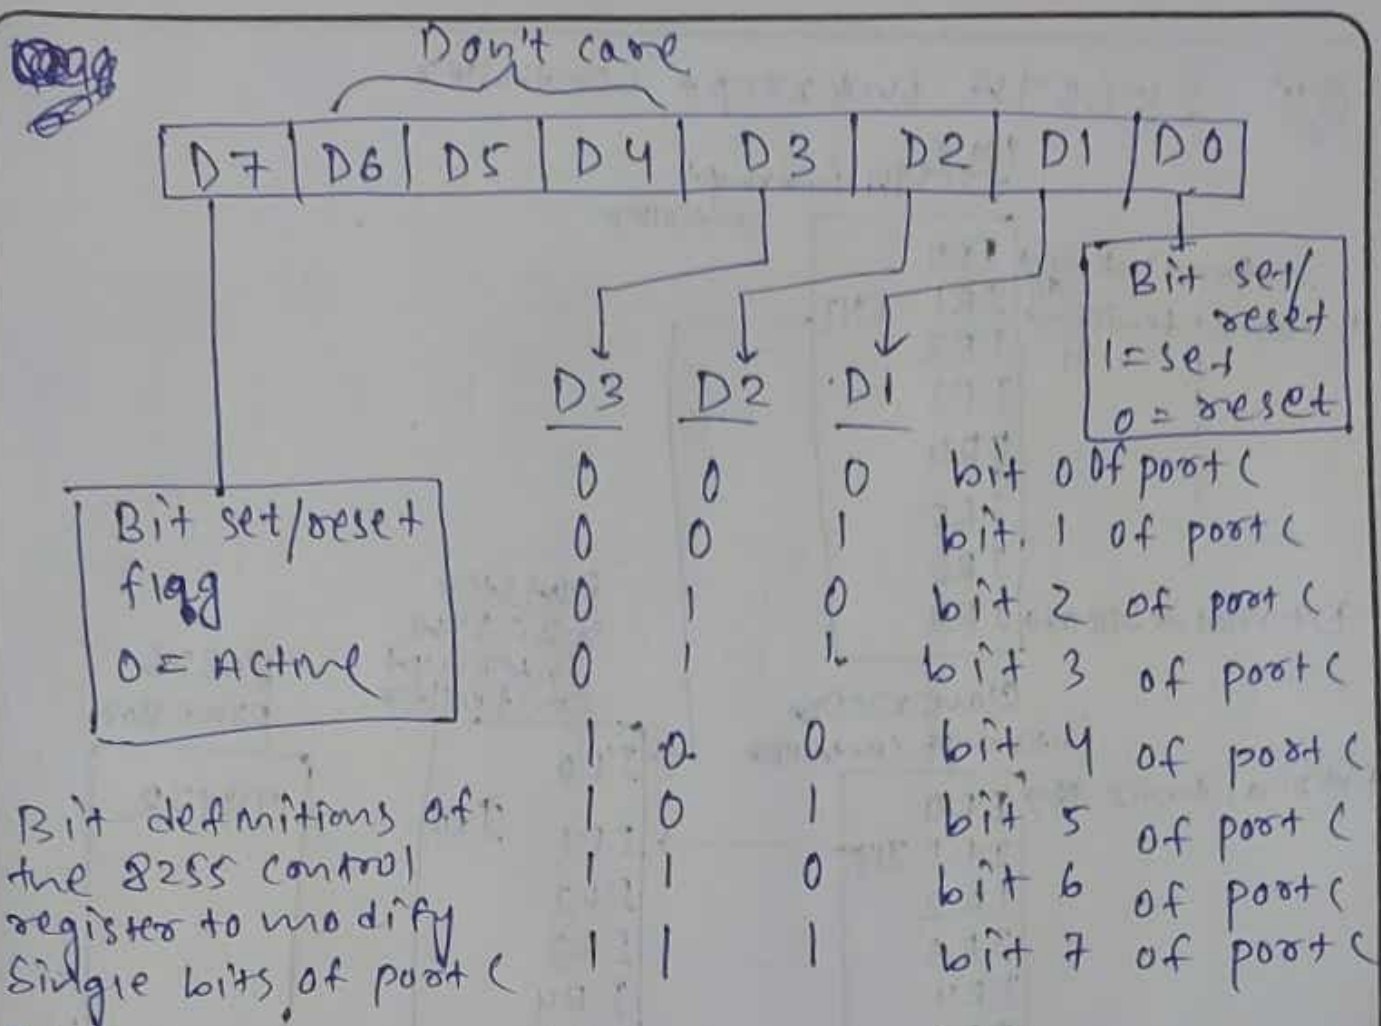 Don't care
D7 D6 D5 D4 D3 D2 D1 D0
Bit set/
reset
1 = set
0 = reset
D3 D2 D1
0 0 0 bit 0 of port C
0 0 1 bit 1 of port C
0 1 0 bit 2 of port C
0 1 1 bit 3 of port C
1 0 0 bit 4 of port C
1 0 1 bit 5 of port C
1 1 0 bit 6 of port C
1 1 1 bit 7 of port C
Bit set/reset
flag
0 = Active
Bit definitions of
the 8255 control
register to modify
Single bits of port C